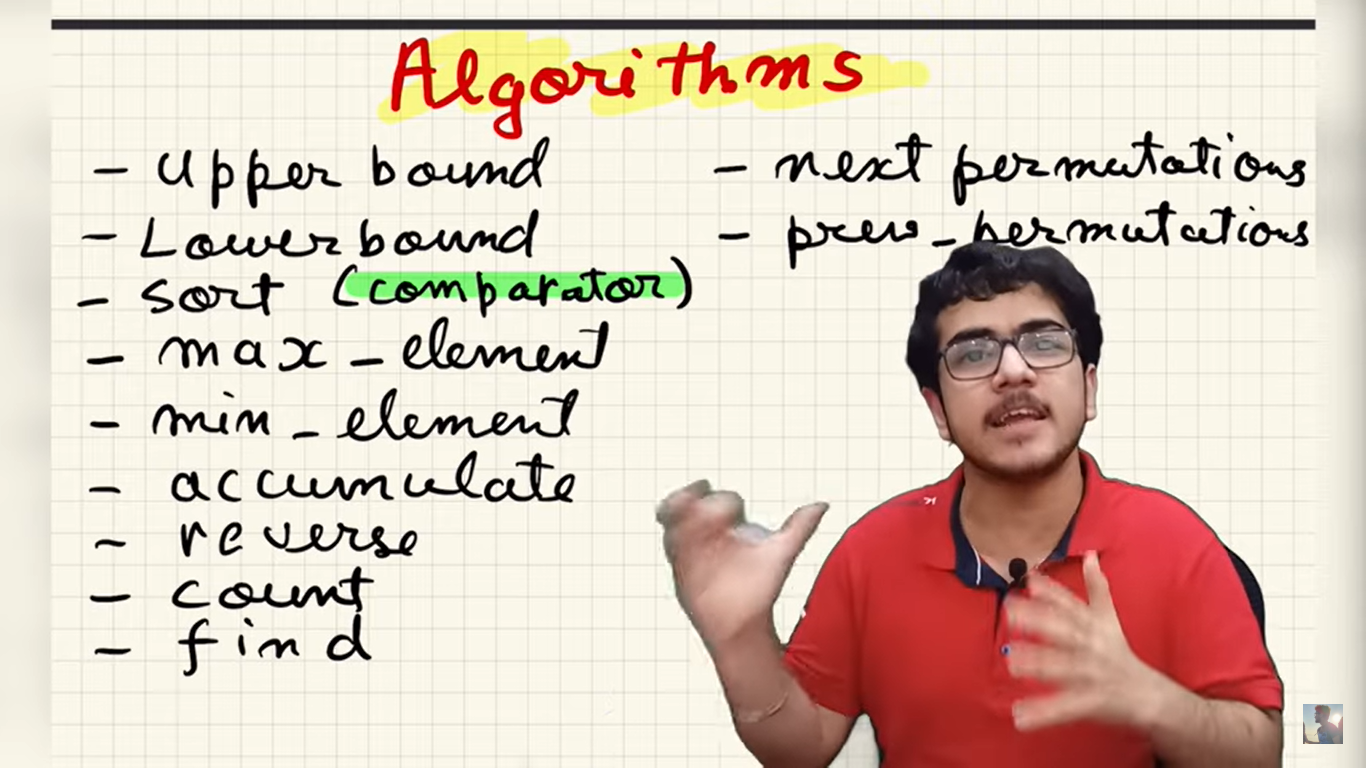 Algorithms
- Upper bound
- Lower bound
- sort (comparator)
- max_element
- min_element
- accumulate
- reverse
- count
- find
- next permutations
- prev_permutations